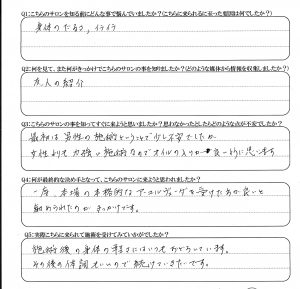 Q1:こちらのサロンを知る前にどんな事で悩んでいましたか？(こちらに来られるに至った原因は何でしたか？)
身体のだるさ、イライラ
Q2:何を見て、また何がきっかけでこちらのサロンの事を知りましたか？(どのような媒体から情報を収集しましたか？)
友人の紹介
Q3:こちらのサロンの事を知ってすぐに来ようと思いましたか？思わなかったとしたらどのような点が不安でしたか？
最初は男性の施術ということで少し不安でしたが
女性よりも力強い施術なのでオイルの入りが良いように思います
Q4:何が最終的な決め手となって、こちらのサロンに来ようと思われましたか？
一度、本場の本格的なアーユルヴェーダを受けた方が良いと
勧められたのがきっかけです。
Q5:実際こちらに来られて施術を受けてみていかがでしたか？
施術後の身体の軽さにはいつもおどろいています。
その後の体調もいいので続けていきたいです。